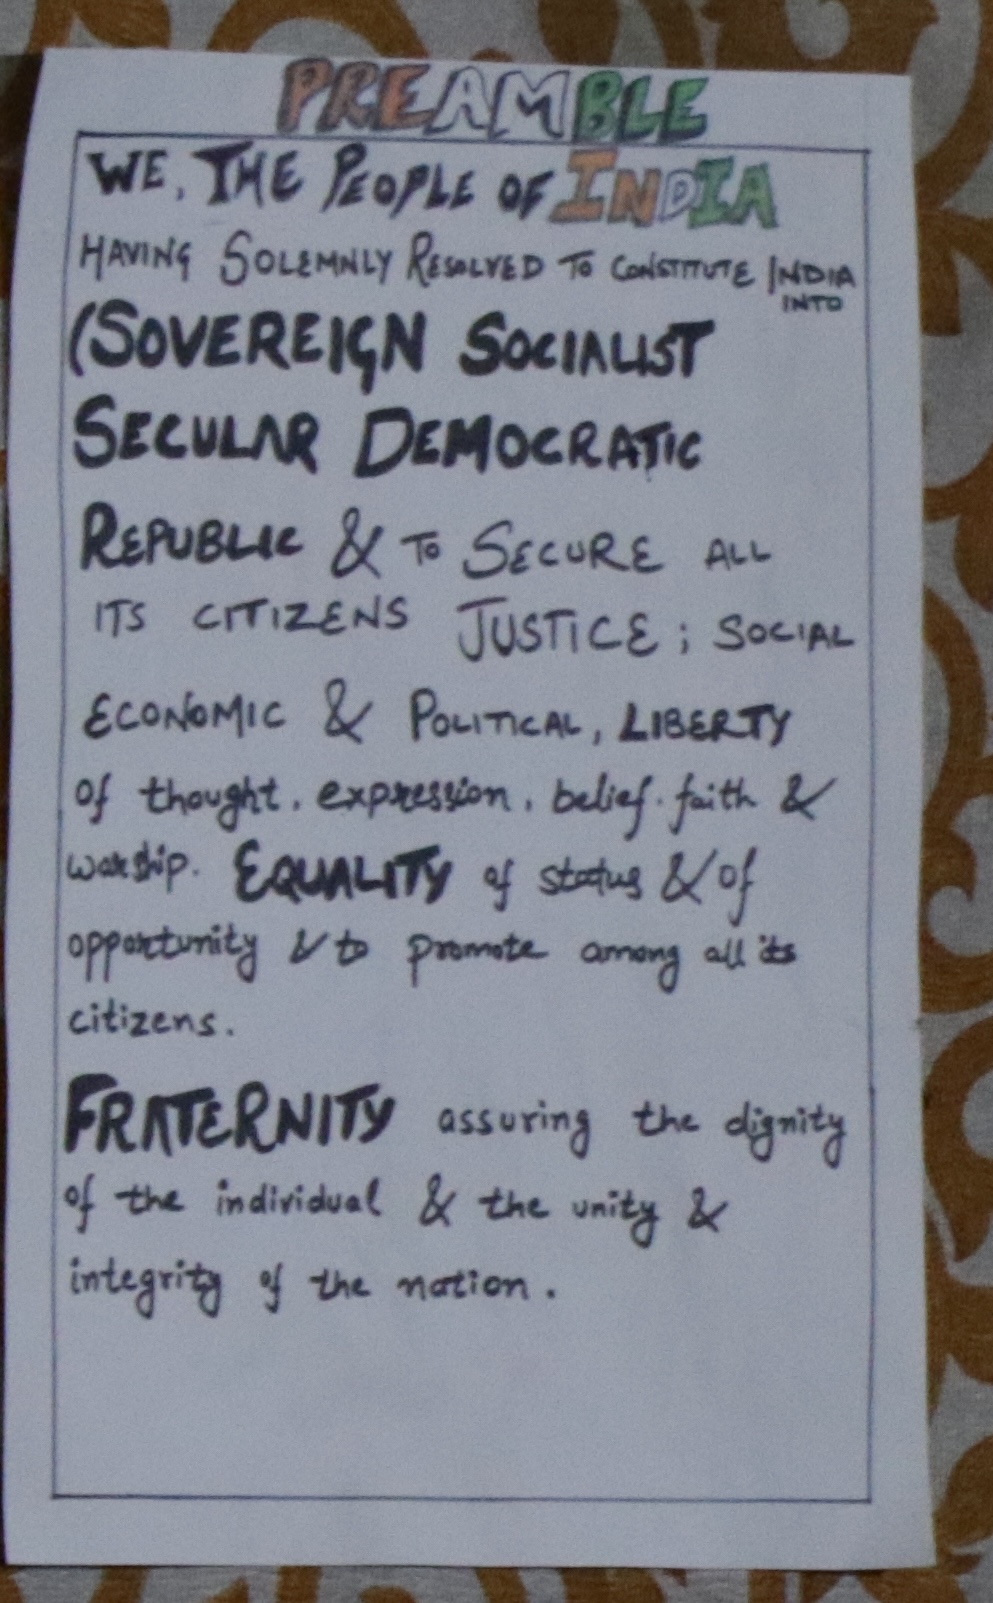 PREAMBLE
WE, THE PEOPLE OF INDIA
HAVING SOLEMNLY RESOLVED TO CONSTITUTE INDIA
INTO
(SOVEREIGN SOCIALIST
SECULAR DEMOCRATIC
REPUBLIC & TO SECURE ALL
ITS CITIZENS JUSTICE; SOCIAL
ECONOMIC & POLITICAL, LIBERTY
of thought, expression, belief, faith &
worship. EQUALITY of status & of
opportunity & to promote among all its
citizens.
FRATERNITY assuring the dignity
of the individual & the unity &
integrity of the nation.